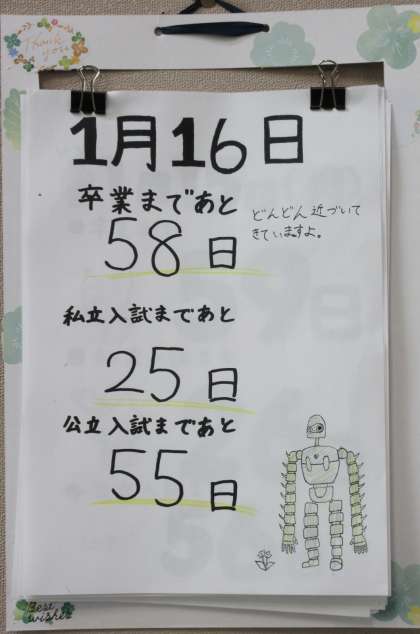 Thank you
1月16日
卒業まであと
58日
どんどん近づいて
きていますよ。
私立入試まであと
25日
公立入試まであと
55日
Best
wishes